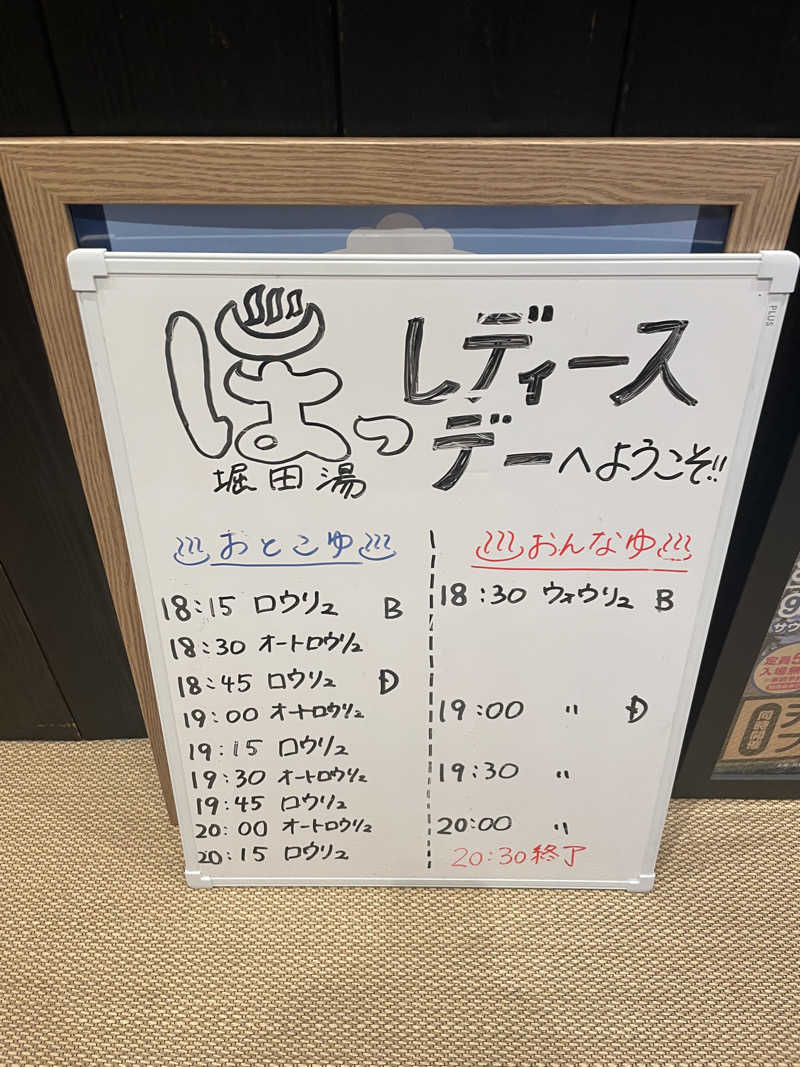 ぽっ
レディース
デーへようこそ!!
堀田湯
おとこゆ
18:15 ロウリュ B
18:30 オートロウリュ
18:45 ロウリュ D
19:00 オートロウリュ
19:15 ロウリュ
19:30 オートロウリュ
19:45 ロウリュ
20:00 オートロウリュ
20:15 ロウリュ
おんなゆ
18:30 ウォウリュ B
19:00 〃 D
19:30 〃
20:00 〃
20:30終了
PLUS
サウ
定員
入場